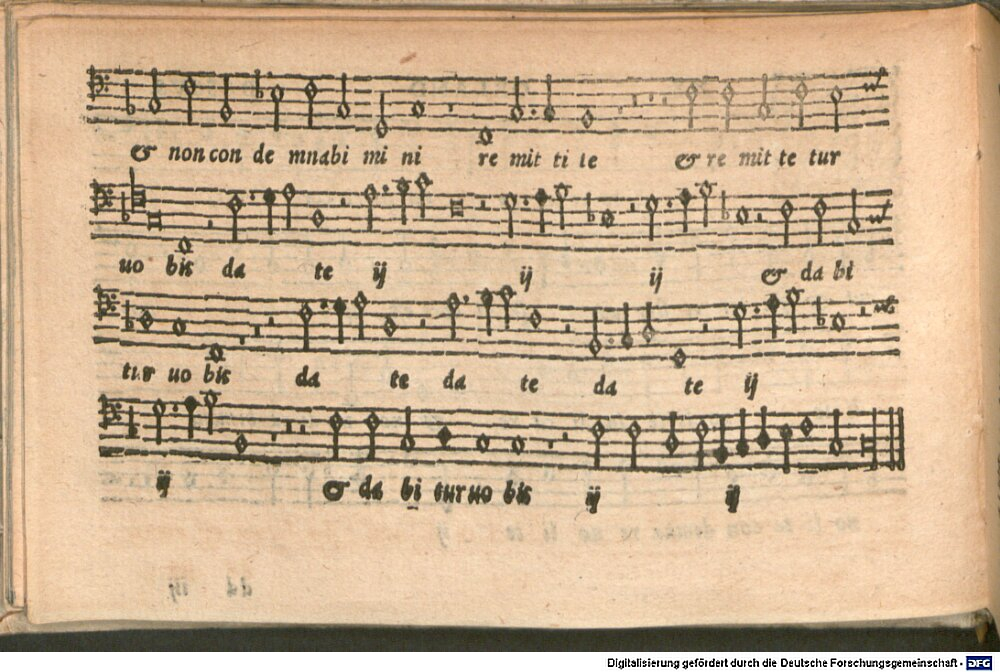 & non con de mnabi mi ni re mit ti te & re mit te tur
uo bis da te ij ij ij & da bi
tur uo bis da te da te da te ij
ij & da bi tur uo bis ij ij
Digitalisierung gefördert durch die Deutsche Forschungsgemeinschaft - DFG